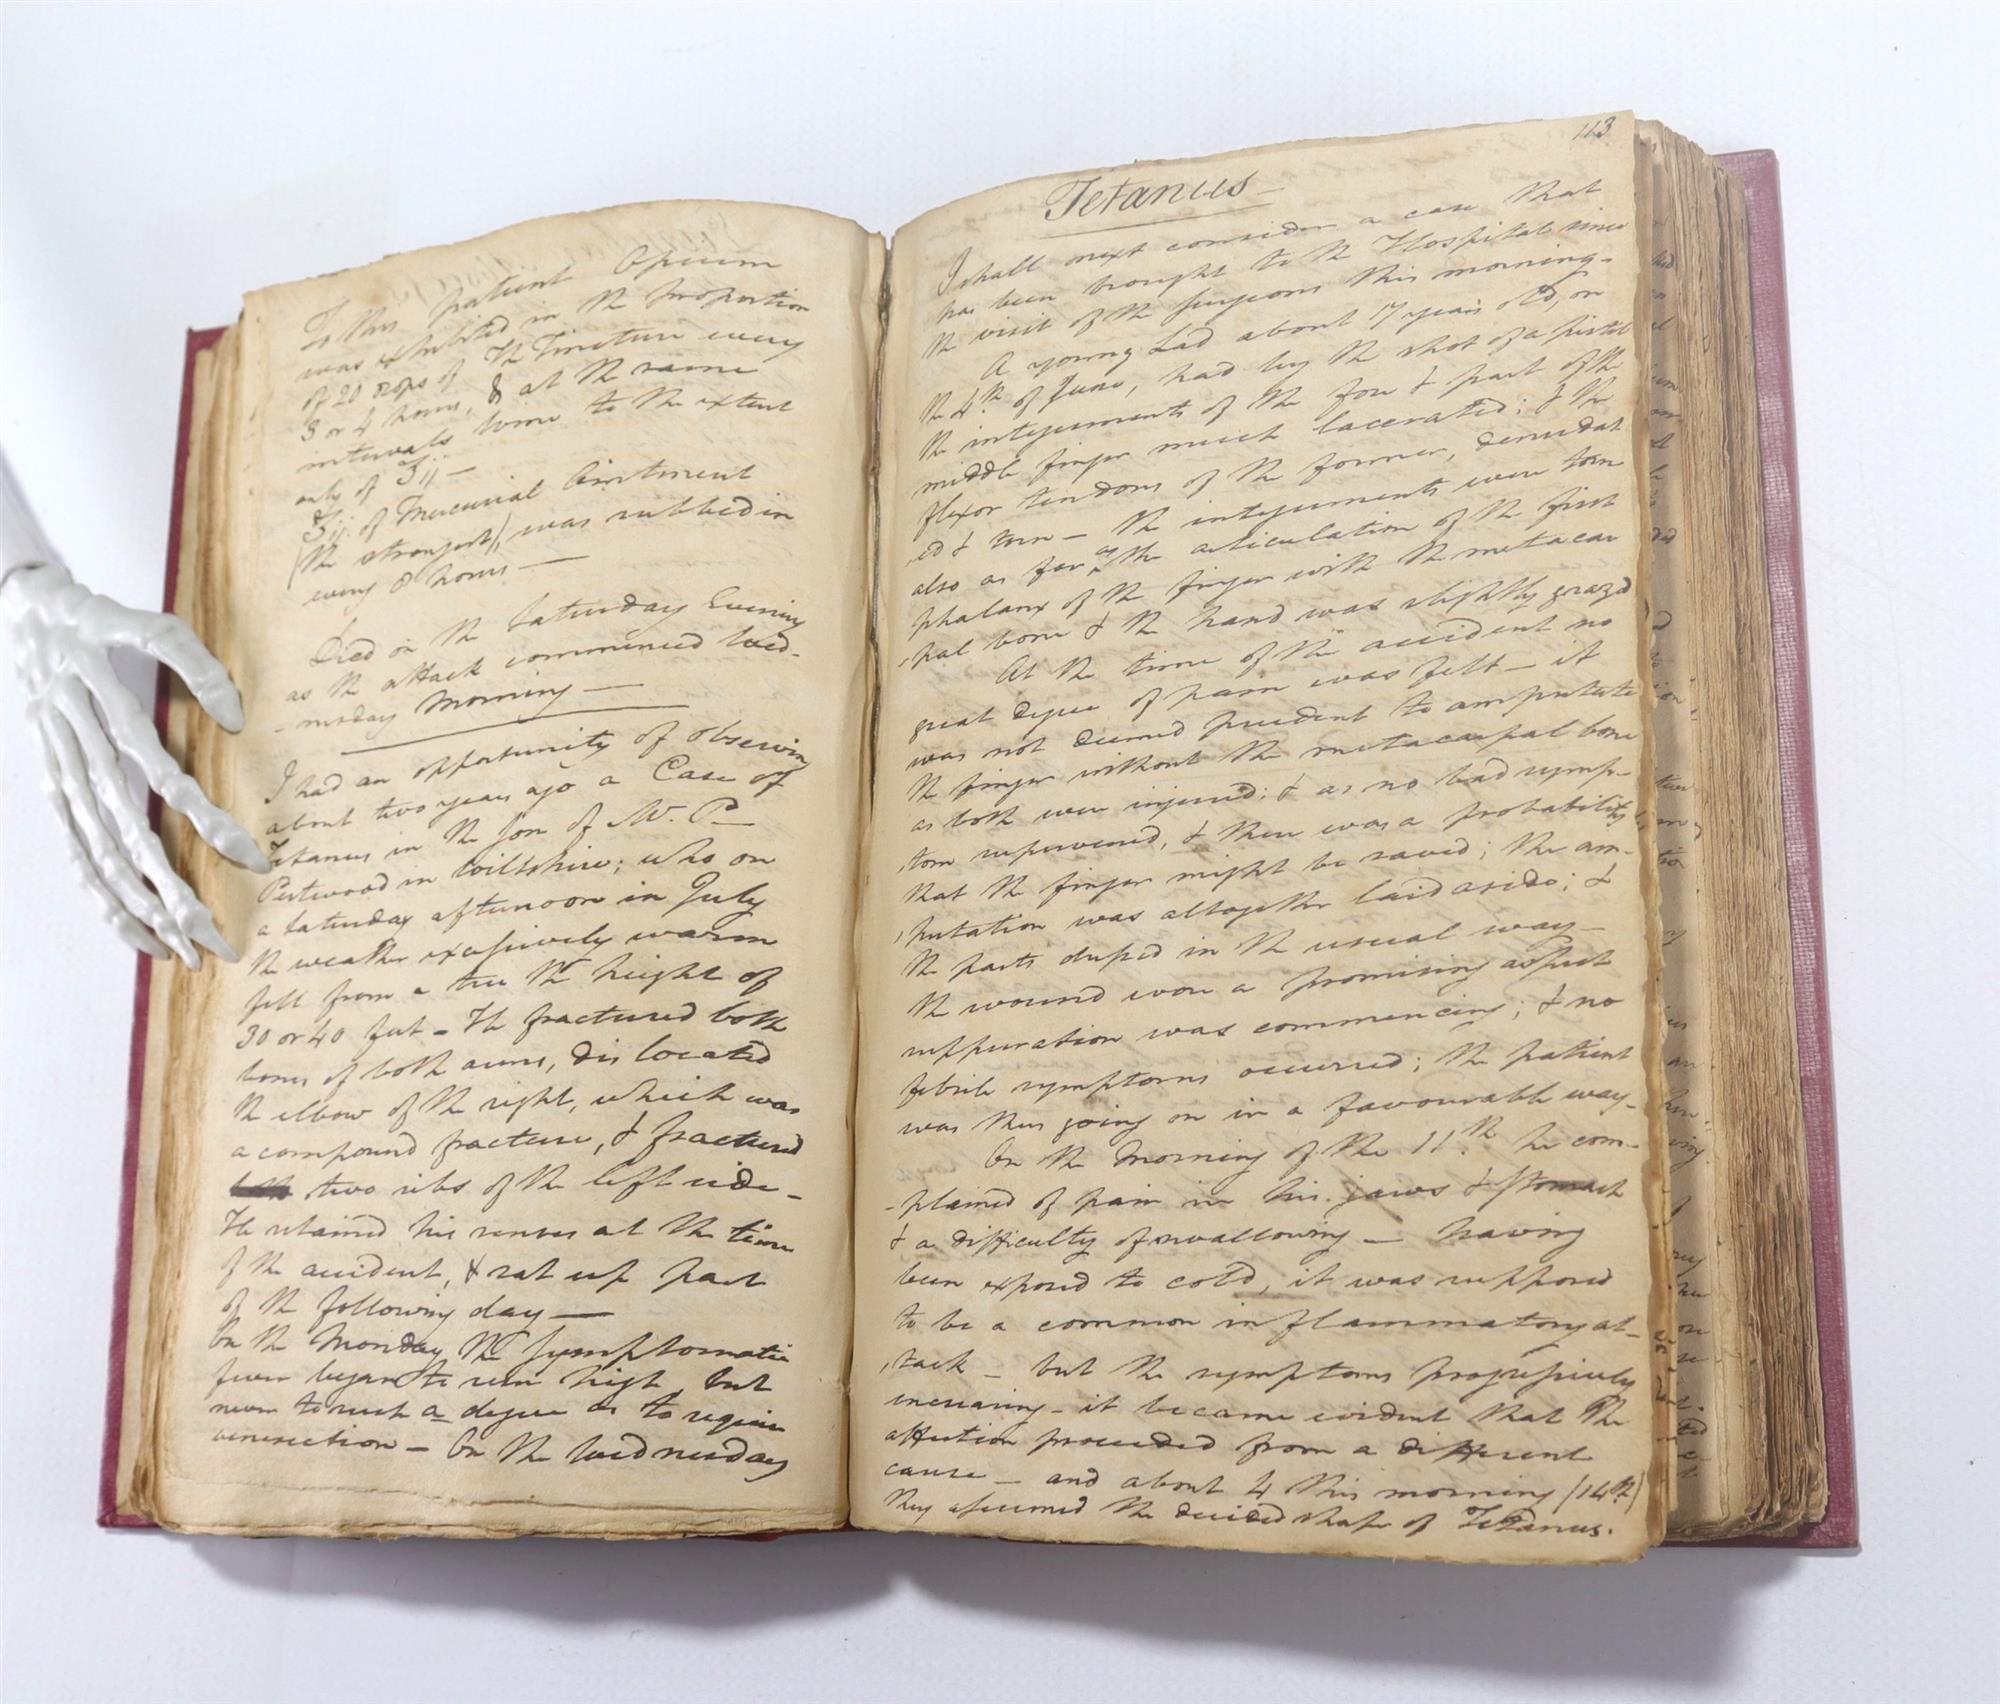 To this patient Opium
was exhibited in the proportion
of 20 drops of the Tincture every
3 or 4 hours, & at the same
intervals wine to the extent
only of ʒij —
ʒij. of Mercurial Ointment
(the strongest), was rubbed in
every 8 hours —
Died on the Saturday Evening
as the attack commenced Wed-
-nesday Morning —
I had an opportunity of observing
about two years ago a Case of
Tetanus in the Son of Mr. P—
Pertwood in Wiltshire; who on
a Saturday afternoon in July
the weather excessively warm
fell from a tree the height of
30 or 40 feet - He fractured both
bones of both arms, dislocated
the elbow of the right, which was
a compound fracture, & fractured
two ribs of the left side -
He retained his senses at the time
of the accident, & sat up part
of the following day —
On the Monday the Symptomatic
fever began to run high but
never to such a degree as to require
venesection - On the Wednesday
113
Tetanus
I shall next consider a case that
has been brought to the Hospital since
the visit of the surgeons this morning-
A young Lad about 17 years old, on
the 4th. of June, had by the shot of a pistol
the integuments of the fore & part of the
middle finger much lacerated; & the
flexor tendons of the former, denudat
,ed & torn - the integuments were torn
also as far as the articulation of the first
phalanx of the finger with the metacar
,pal bone & the hand was slightly grazed
At the time of the accident no
great degree of pain was felt - it
was not deemed prudent to amputate
the finger without the metacarpal bone
as both were injured; & as no bad symp-
,tom supervened, & there was a probability
that the finger might be saved; the am-
,putation was altogether laid aside; &
the parts dressed in the usual way -
the wound wore a promising aspect
suppuration was commencing; & no
febrile symptoms occurred; the patient
was thus going on in a favourable way-
On the Morning of the 11th. he com-
-plained of pain in his jaws & stomach
& a difficulty of swallowing — having
been exposed to cold, it was supposed
to be a common inflammatory at-
,tack - but the symptoms progressively
increasing - it became evident that the
affection proceeded from a different
cause - and about 4 this morning (14th.)
they assumed the decided shape of Tetanus.